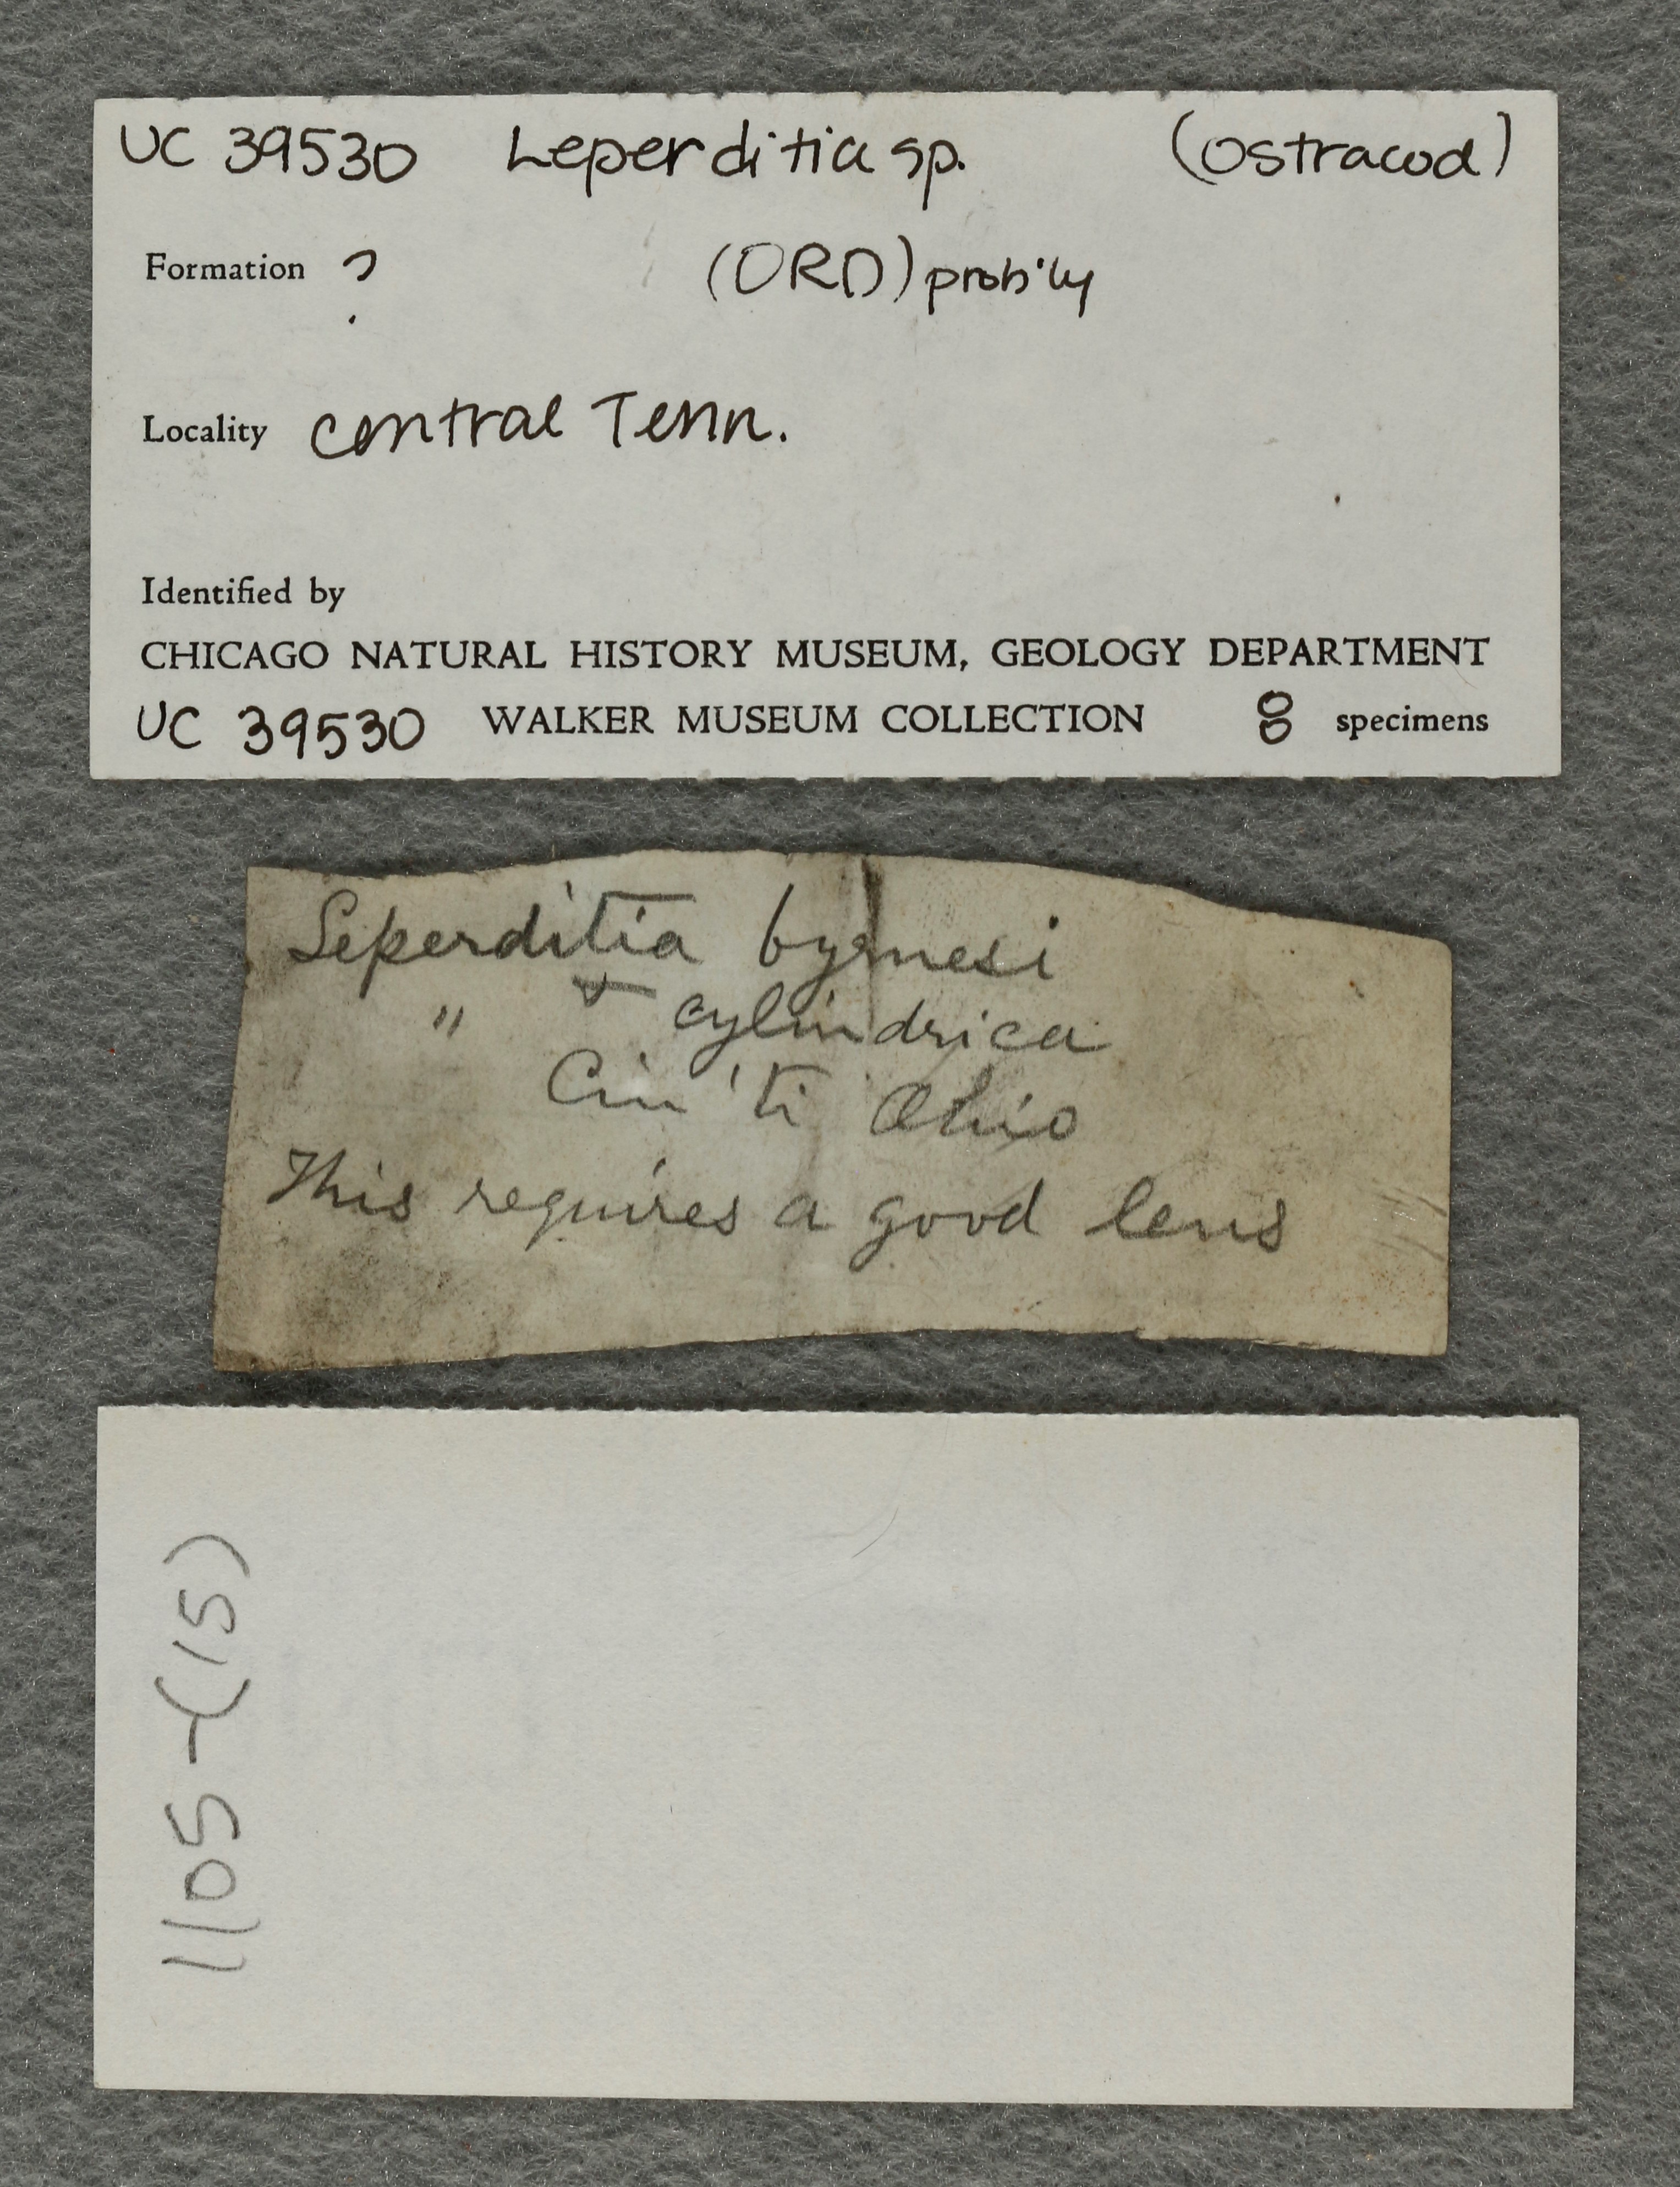 UC 39530 Leperditia sp. (Ostracod)
Formation ? (ORD) prob'ly
Locality central Tenn.
Identified by
CHICAGO NATURAL HISTORY MUSEUM, GEOLOGY DEPARTMENT
UC 39530 WALKER MUSEUM COLLECTION 8 specimens
Leperditia byrnesi
" cylindrica
Cin'ti Ohio
This requires a good lens
1105-(15)